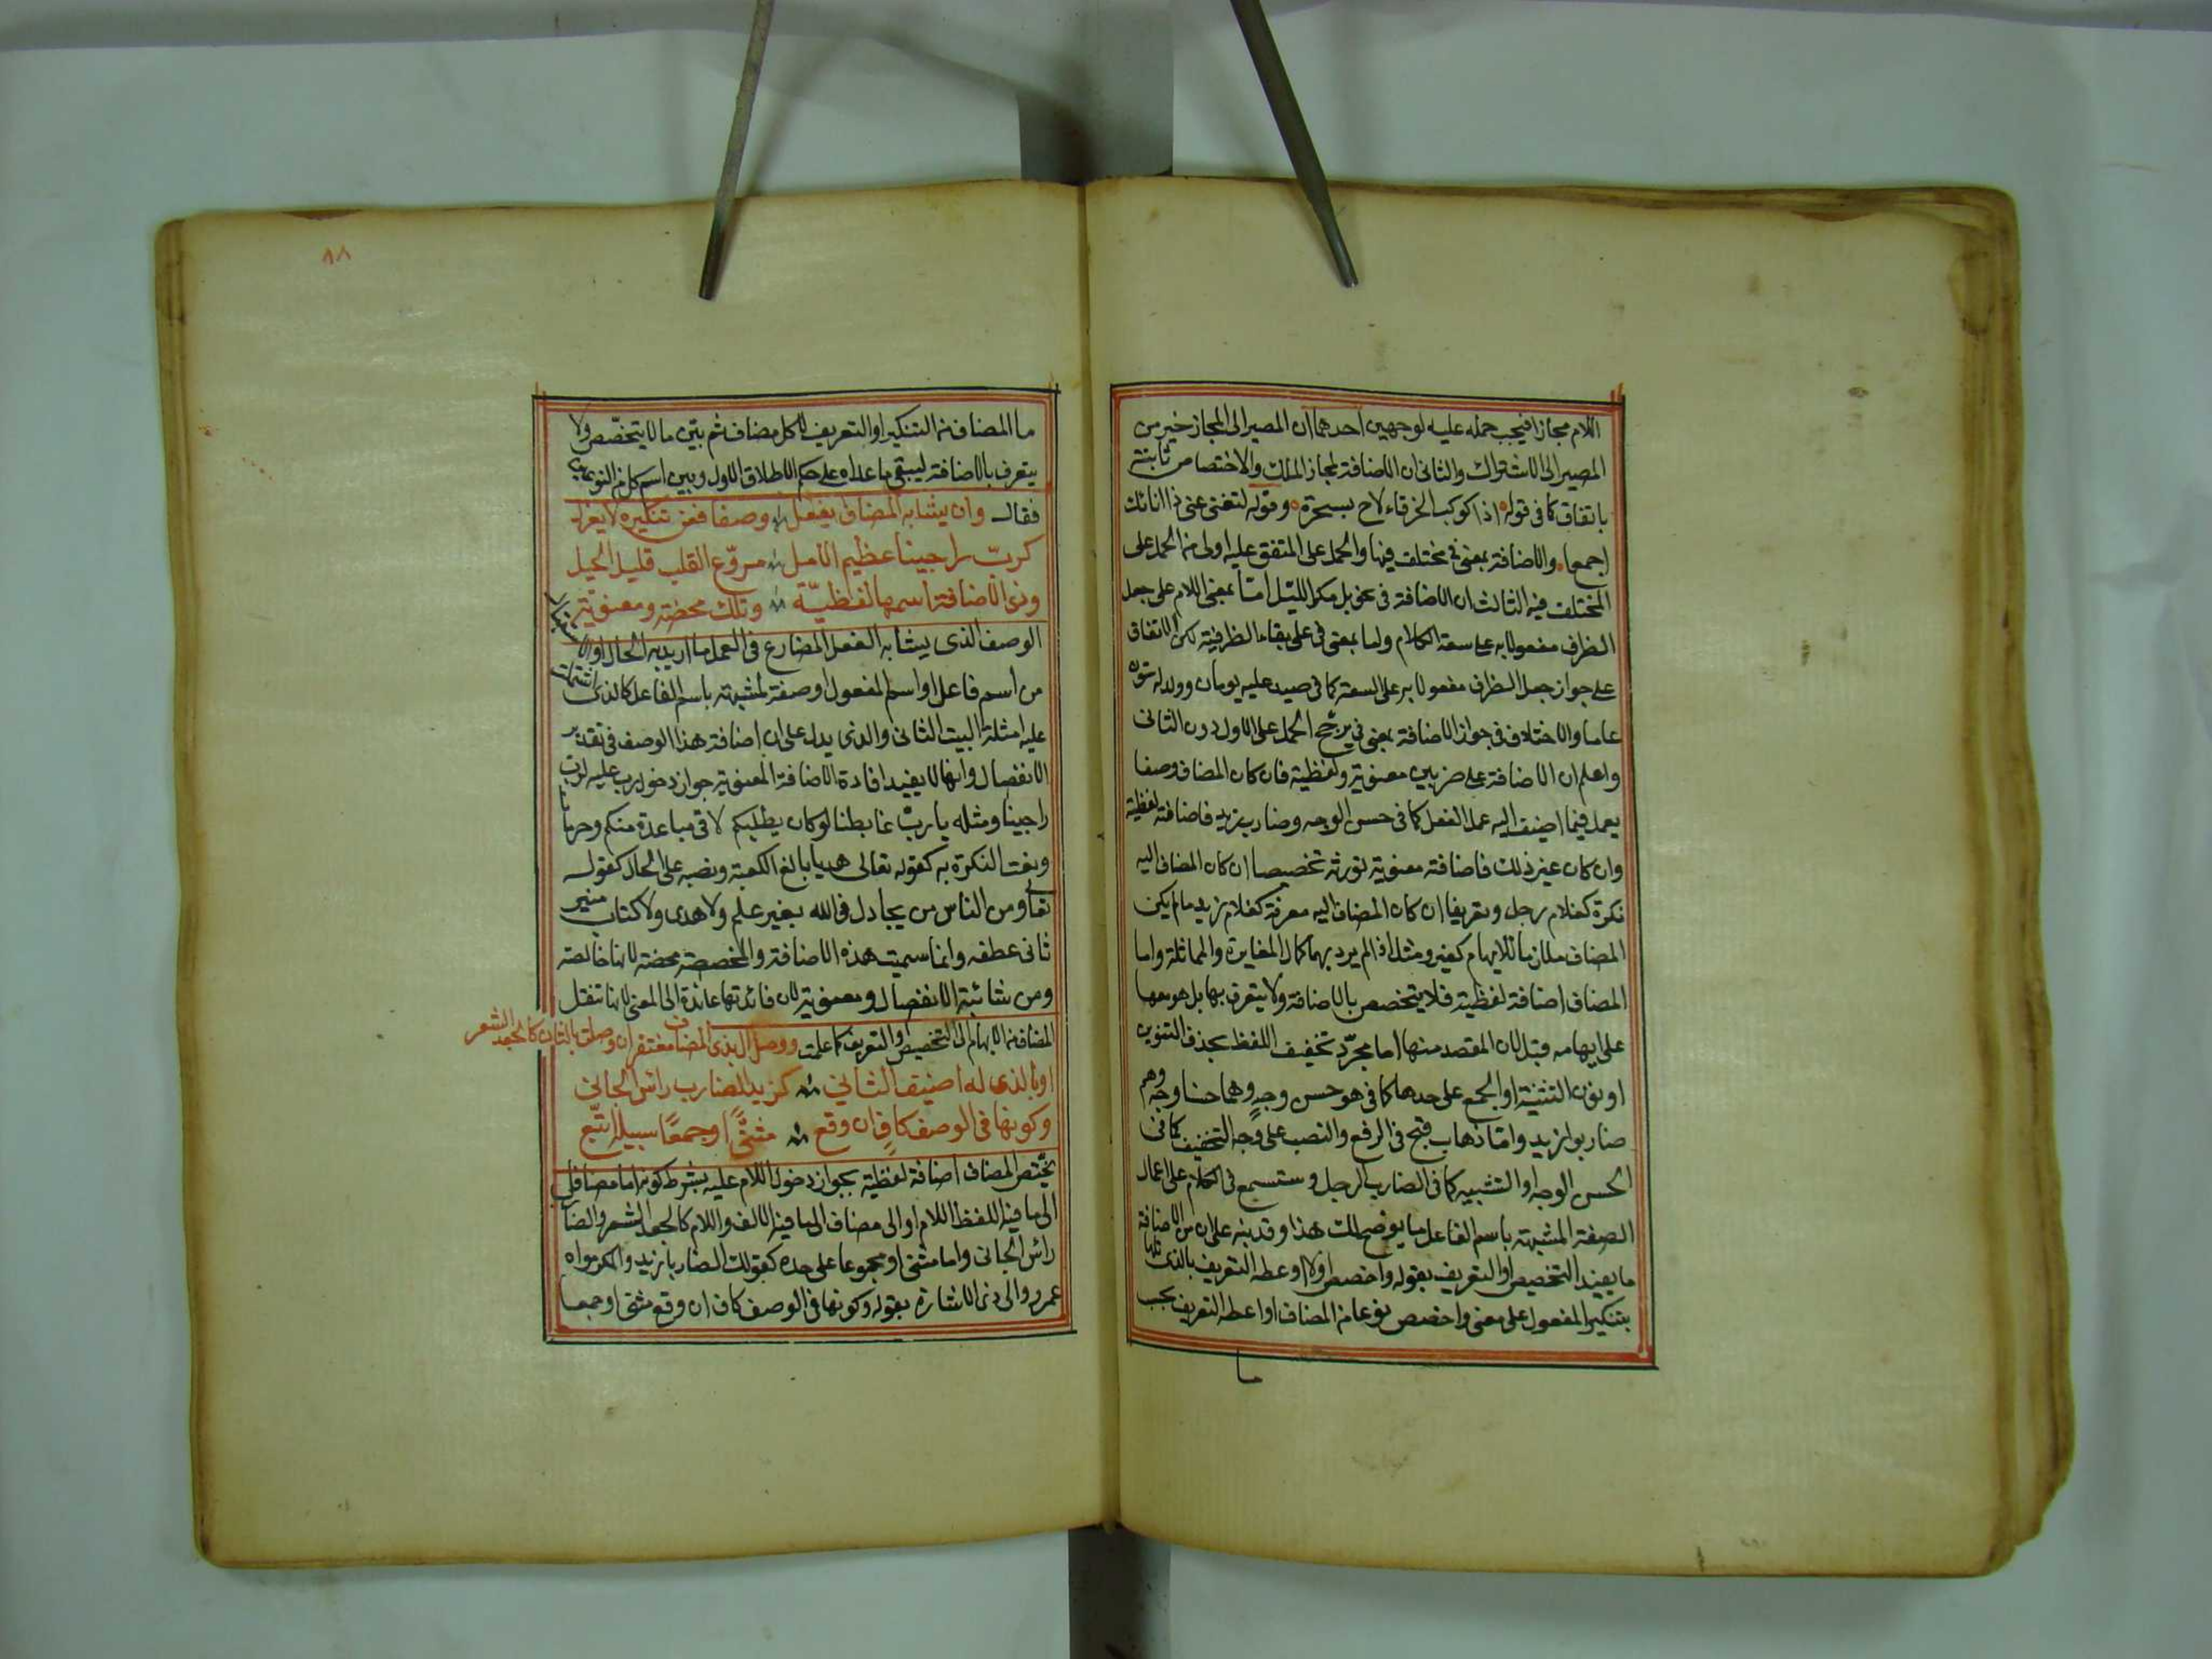 اللام مجازا فيجب حمله عليه لوجهين احدهما ان المصير الى المجاز خير من
المصير الى الاشتراك والثانى ان الاضافة لمجاز الملك والاختصاص ثابتة
باتفاق كما فى قوله اذا كوكب الخرقاء لاح بسحرة وقوله لتغنى عنى ذا انائك
اجمعا والاضافة بمعنى فى مختلف فيها والحمل على المتفق عليه اولى من الحمل على
المختلف فيه الثالث ان الاضافة فى نحو بل مكر الليل اما بمعنى اللام على جعل
الظرف مفعولا به على سعة الكلام واما بمعنى فى على بقاء الظرفية لكن الاتفاق
على جواز جعل الظرف مفعولا به على السعة كما فى صيد عليه يومان وولد له ستون
عاما والاختلاف فى جواز الاضافة بمعنى فى يرجح الحمل على الاول دون الثانى
واعلم ان الاضافة على ضربين معنوية ولفظية فان كان المضاف وصفا
يعمل فيما اضيف اليه عمل الفعل كما فى حسن الوجه وضارب زيد فاضافته لفظية
وان كان غير ذلك فاضافته معنوية تورثه تخصيصا ان كان المضاف اليه
نكرة كغلام رجل وتعريفا ان كان المضاف اليه معرفة كغلام زيد ما لم يكن
المضاف ملازما للابهام كغير ومثل اذا لم يرد بهما كمال المغايرة والمماثلة واما
المضاف اضافة لفظية فلا يتخصص بالاضافة ولا يتعرف بها بل هو معها
على ابهامه قبل لان المقصد منها اما مجرد تخفيف اللفظ بحذف التنوين
او نون التثنية او الجمع على حدها كما فى هو حسن وجه وهما حسنا وجه وهم
ضاربوا زيد واما ذهاب قبح فى الرفع والنصب على وجه التخفيف كما فى
الحسن الوجه او التشبيه كما فى الضارب الرجل وستسمع فى الكلام على اعمال
الصفة المشبهة باسم الفاعل ما يوضح لك هذا وقد نبه على ان من الاضافة
ما يفيد التخصيص او التعريف بقوله واخصص اولا او اعطه التعريف بالذى تلا
بتنكير المفعول على معنى واخصص نوعا من المضاف او اعطه التعريف بحب
ما
٨٨
ما المضاف من التنكير او التعريف لا كل مضاف ثم بين ما لا يتخصص ولا
يتعرف بالاضافة ليبقى ما عداه على حكم الاطلاق الاول وبين اسم كل من النوعين
فقال وان يشابه المضاف يفعل وصفا فعن تنكيره لا يعزل
كرب راجينا عظيم الامل مروع القلب قليل الحيل
وذى الاضافة اسمها لفظية وتلك محضة ومعنوية
الوصف الذى يشابه الفعل المضارع فى العمل ما اريد به الحال او الاستقبال
من اسم فاعل او اسم المفعول او صفة لمشبهة باسم الفاعل كالذى اشتملت
عليه امثلة البيت الثانى والذى يدل على ان اضافة هذا الوصف فى تقدير
الانفصال وانها لا يفيد افادة الاضافة المعنوية جواز دخول رب عليه كرب
راجينا ومثله يا رب غابطنا لو كان يطلبكم لاقى مباعدة منكم وحرمانا
ونعت النكرة به كقوله تعالى هديا بالغ الكعبة ونصبه على الحال كقوله
تعالى ومن الناس من يجادل فى الله بغير علم ولا هدى ولا كتاب منير
ثانى عطفه وانما سميت هذه الاضافة والمخصصة محضة لانها خالصة
ومن شائبة الانفصال ومعنوية لان فائدتها عائدة الى المعنى لانها تنقل
المضاف من الابهام الى التخصيص والتعريف كما علمت ووصل ال بذى المضاف مغتفر ان وصلت بالثان كالجعد الشعر
او بالذى له اضيف الثانى كزيد الضارب راس الجانى
وكونها فى الوصف كاف ان وقع مثنى او جمعا سبيله اتبع
يختص المضاف اضافة لفظية بجواز دخول اللام عليه بشرط كونه اما مضافا
الى ما فيه اللفظ اللام او الى مضاف الى ما فيه الالف واللام كالجعد الشعر والضارب
راس الجانى واما مثنى او مجموعا على حده كقولك الضاربا زيد والمكرمواه
عمرو والى ذى الاشارة بقوله وكونها فى الوصف كاف ان وقع مثنى او جمعا